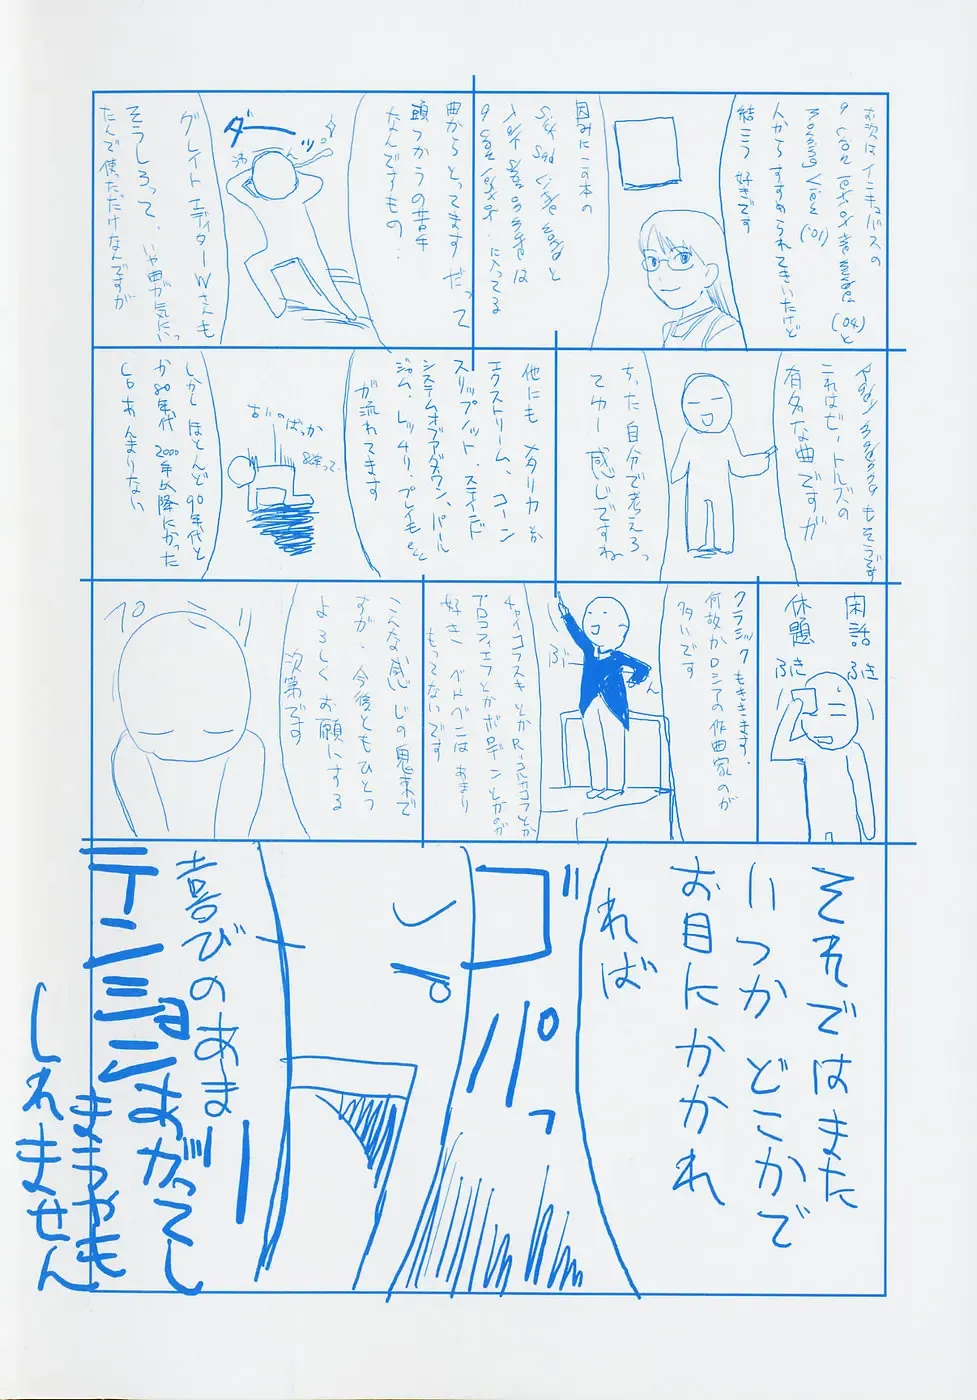 お次はインキュバスの
('04)と
('01)
人からすすめられてきいたけど
結こう好きです
因みにこの本の
と
は
に入ってる
曲からとってます だって
頭つかうの苦手
なんですもの…
ダーッ
グレイト エディターWさんも
そうしろって、いや曲が気にいっ
たんで使ただけなんですが
もそうです
これはビートルズの
有名な曲ですが
ちった自分で考えろっ
てゆー感じですね
他にも メタリカとか
エクストリーム、コーン
スリップノット、ステインド
システムオブアダウン、パール
ジャム、レッチリ、プレイモetc
が流れてます
しかし ほとんど90年代と
か80年代 2000年以降になった
らあんまりない
閑話 ふき
休題 ふき
クラシックもききます。
何故かロシアの作曲家のが
多いです
チャイコフスキとかR・コルサコフとか
プロコフィエフとかボロディンとかのが
好き ベトベンはあまり
もってないです
こんな感じの鬼束で
すが、今後ともひとつ
よろしくお願いする
次第です
ペコ
それではまた
いつか どこかで
お目にかかれ
れば
ガバっ
喜びのあまー
テンションあがってし
まうやも
しれません